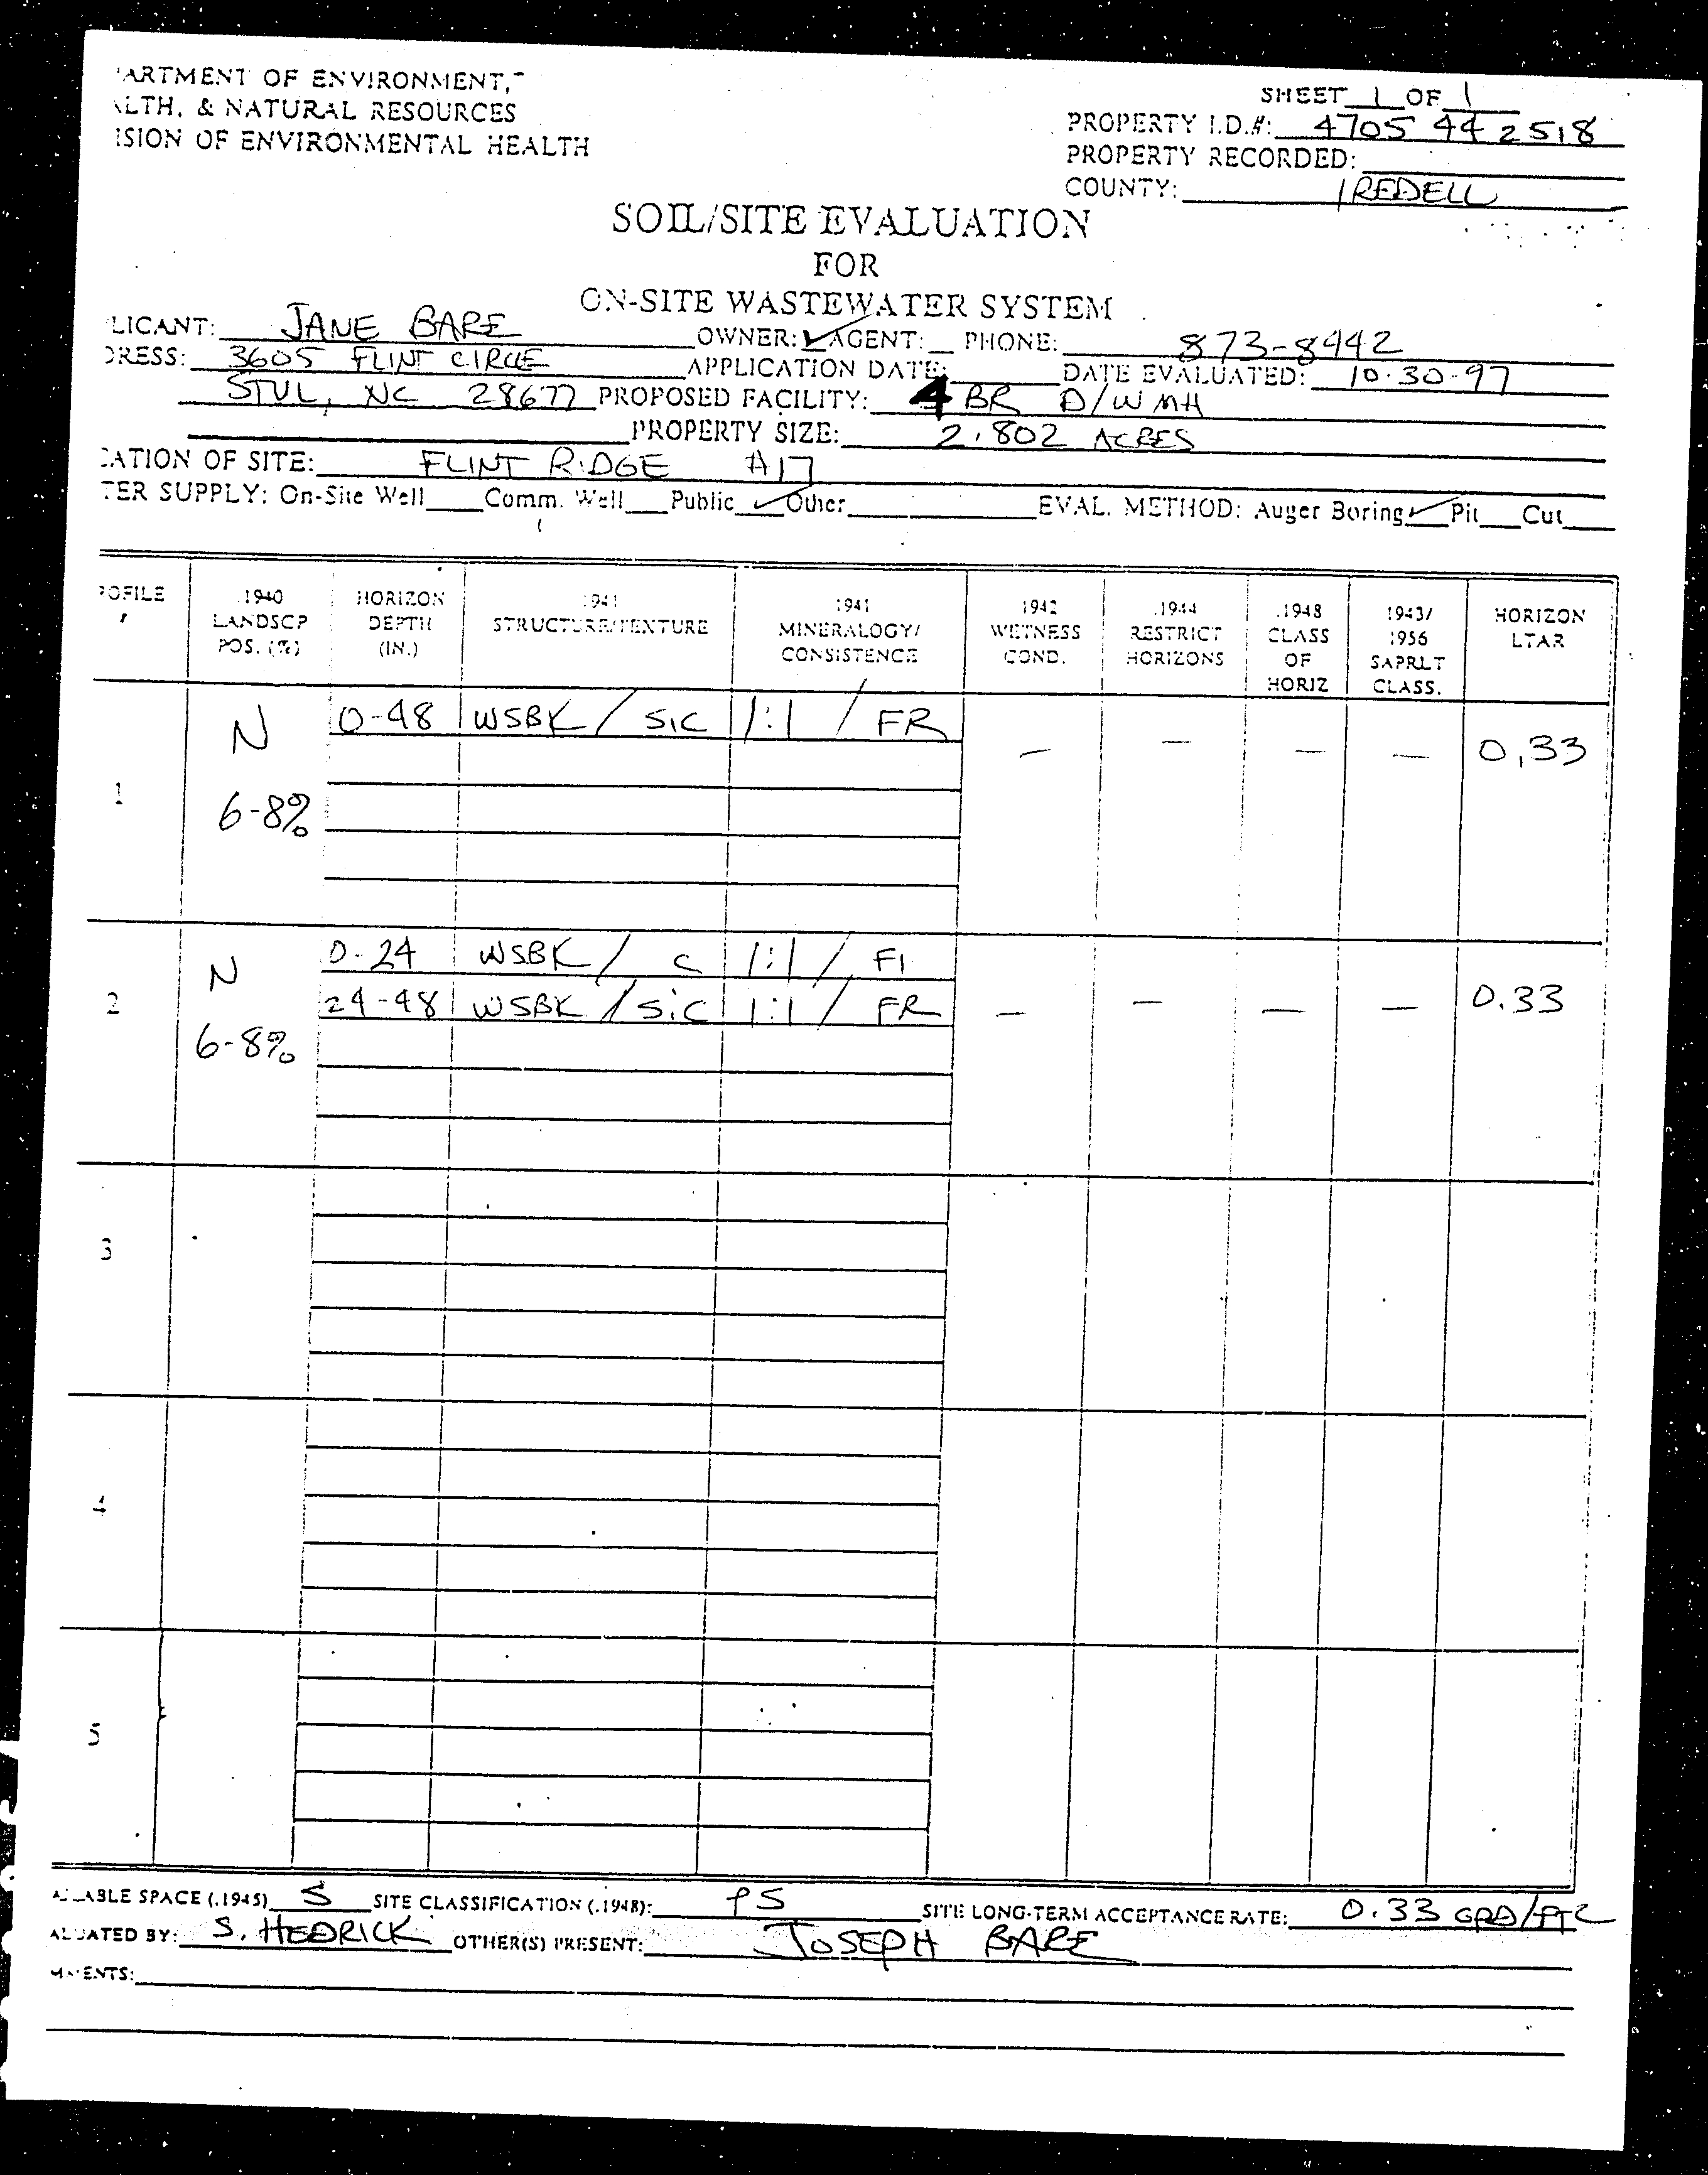 ARTMENT OF ENVIRONMENT,
LTH, & NATURAL RESOURCES
ISION OF ENVIRONMENTAL HEALTH
SHEET 1 OF 1
PROPERTY I.D.#: 4705 44 2518
PROPERTY RECORDED:
COUNTY: IREDELL
SOIL/SITE EVALUATION
FOR
ON-SITE WASTEWATER SYSTEM
LICANT: JANE BARE OWNER: ✓ AGENT: PHONE: 873-8442
DRESS: 3605 FLINT CIRCLE APPLICATION DATE: DATE EVALUATED: 10-30-97
STVL, NC 28677 PROPOSED FACILITY: 4 BR D/W MH
PROPERTY SIZE: 2.802 ACRES
CATION OF SITE: FLINT RIDGE #17
TER SUPPLY: On-Site Well Comm. Well Public ✓ Other EVAL. METHOD: Auger Boring ✓ Pit Cut
ROFILE # .1940 LANDSCP POS. (%) HORIZON DEPTH (IN.) .1941 STRUCTURE/TEXTURE .1941 MINERALOGY/ CONSISTENCE .1942 WETNESS COND. .1944 RESTRICT HORIZONS .1948 CLASS OF HORIZ .1943/ .1956 SAPRLT CLASS. HORIZON LTAR
1 N 6-8% 0-48 WSBK / SIC 1:1 / FR — — — — 0.33
2 N 6-8% 0-24 WSBK / C 1:1 / FI
24-48 WSBK / SIC 1:1 / FR — — — — 0.33
3
4
5
LABLE SPACE (.1945) S SITE CLASSIFICATION (.1948): PS SITE LONG-TERM ACCEPTANCE RATE: 0.33 GPD/FT2
ALUATED BY: S. HEDRICK OTHER(S) PRESENT: JOSEPH BARE
MMENTS: